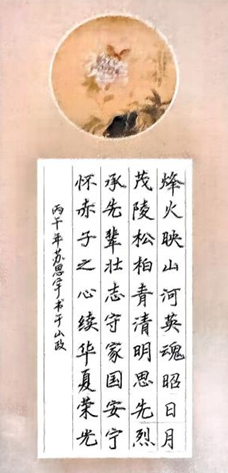 烽火映山河英魂昭日月
茂陵松柏青清明思先烈
承先辈壮志守家国安宁
怀赤子之心续华夏荣光
丙午年苏思宇书于山政